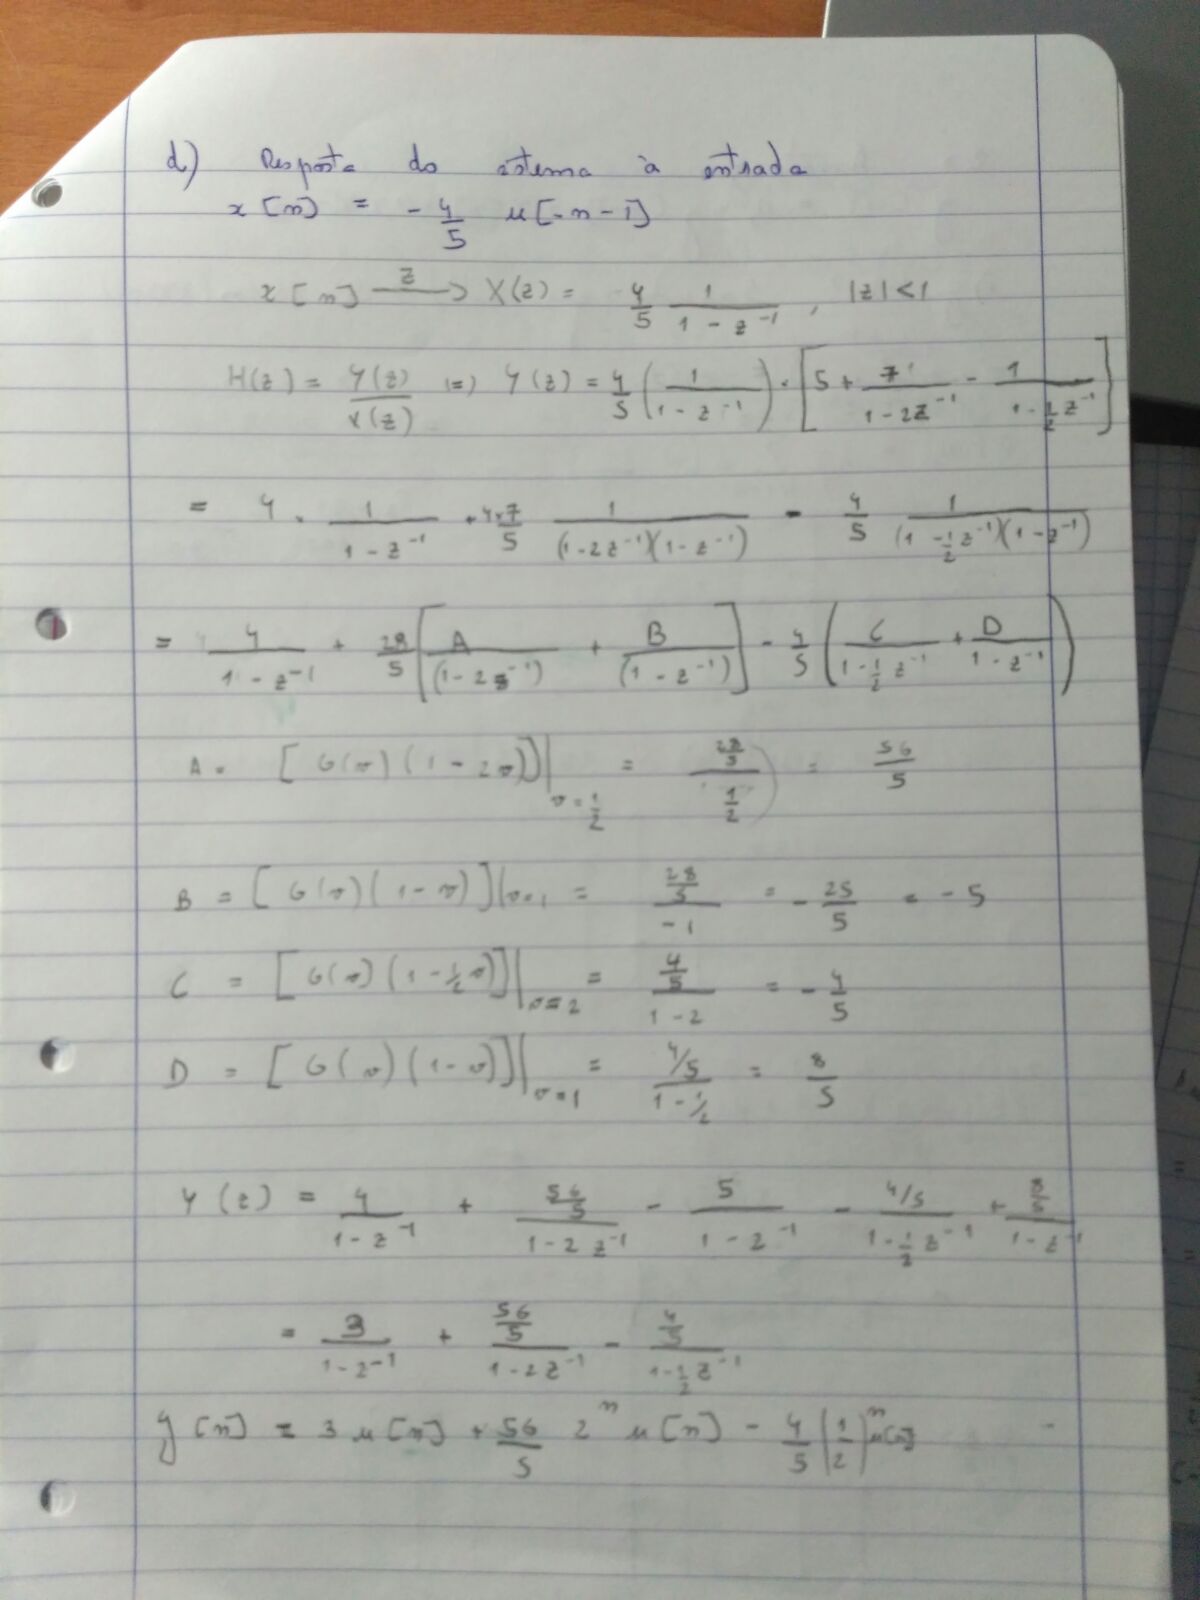 d) Resposta do sistema à entrada
x[n] = - 4/5 u[-n-1]
x[n] —Z→ X(z) = 4/5 1/(1 - z^-1), |z|<1
H(z) = Y(z)/X(z) (=) Y(z) = 4/5 (1/(1 - z^-1)) · [5 + 7/(1 - 2z^-1) - 1/(1 - 1/2 z^-1)]
= 4 · 1/(1 - z^-1) + 4×7/5 1/((1-2z^-1)(1-z^-1)) - 4/5 1/((1 - 1/2 z^-1)(1-z^-1))
= 4/(1 - z^-1) + 28/5 [A/(1-2z^-1) + B/(1-z^-1)] - 4/5 (C/(1 - 1/2 z^-1) + D/(1 - z^-1))
A = [G(v)(1-2v)]|v=1/2 = (28/5)/(1/2) = 56/5
B = [G(v)(1-v)]|v=1 = (28/5)/-1 = - 25/5 = -5
C = [G(v)(1 - 1/2 v)]|v=2 = (4/5)/(1-2) = - 4/5
D = [G(v)(1-v)]|v=1 = (4/5)/(1 - 1/2) = 8/5
Y(z) = 4/(1-z^-1) + (56/5)/(1-2z^-1) - 5/(1-z^-1) - (4/5)/(1 - 1/2 z^-1) + (8/5)/(1-z^-1)
= 3/(1-z^-1) + (56/5)/(1-2z^-1) - (4/5)/(1 - 1/2 z^-1)
y[n] = 3 u[n] + 56/5 2^n u[n] - 4/5 (1/2)^n u[n]